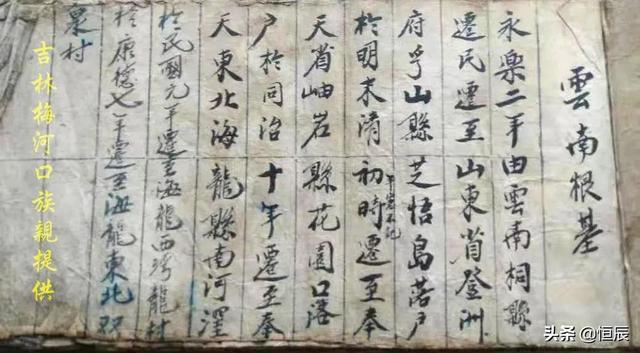 雲南根基
永樂二年由雲南桐縣
遷民遷至山東省登洲
府山縣芝悟島落戶
於明末清初時遷至奉
不記
天省岫岩縣花園口落
户於同治十年遷至奉
天東北海龍縣南河
於民國元年遷至海龍西龍村
於康德七年遷至海龍東北双
泉村
吉林梅河口族親提供
头条 @恒辰